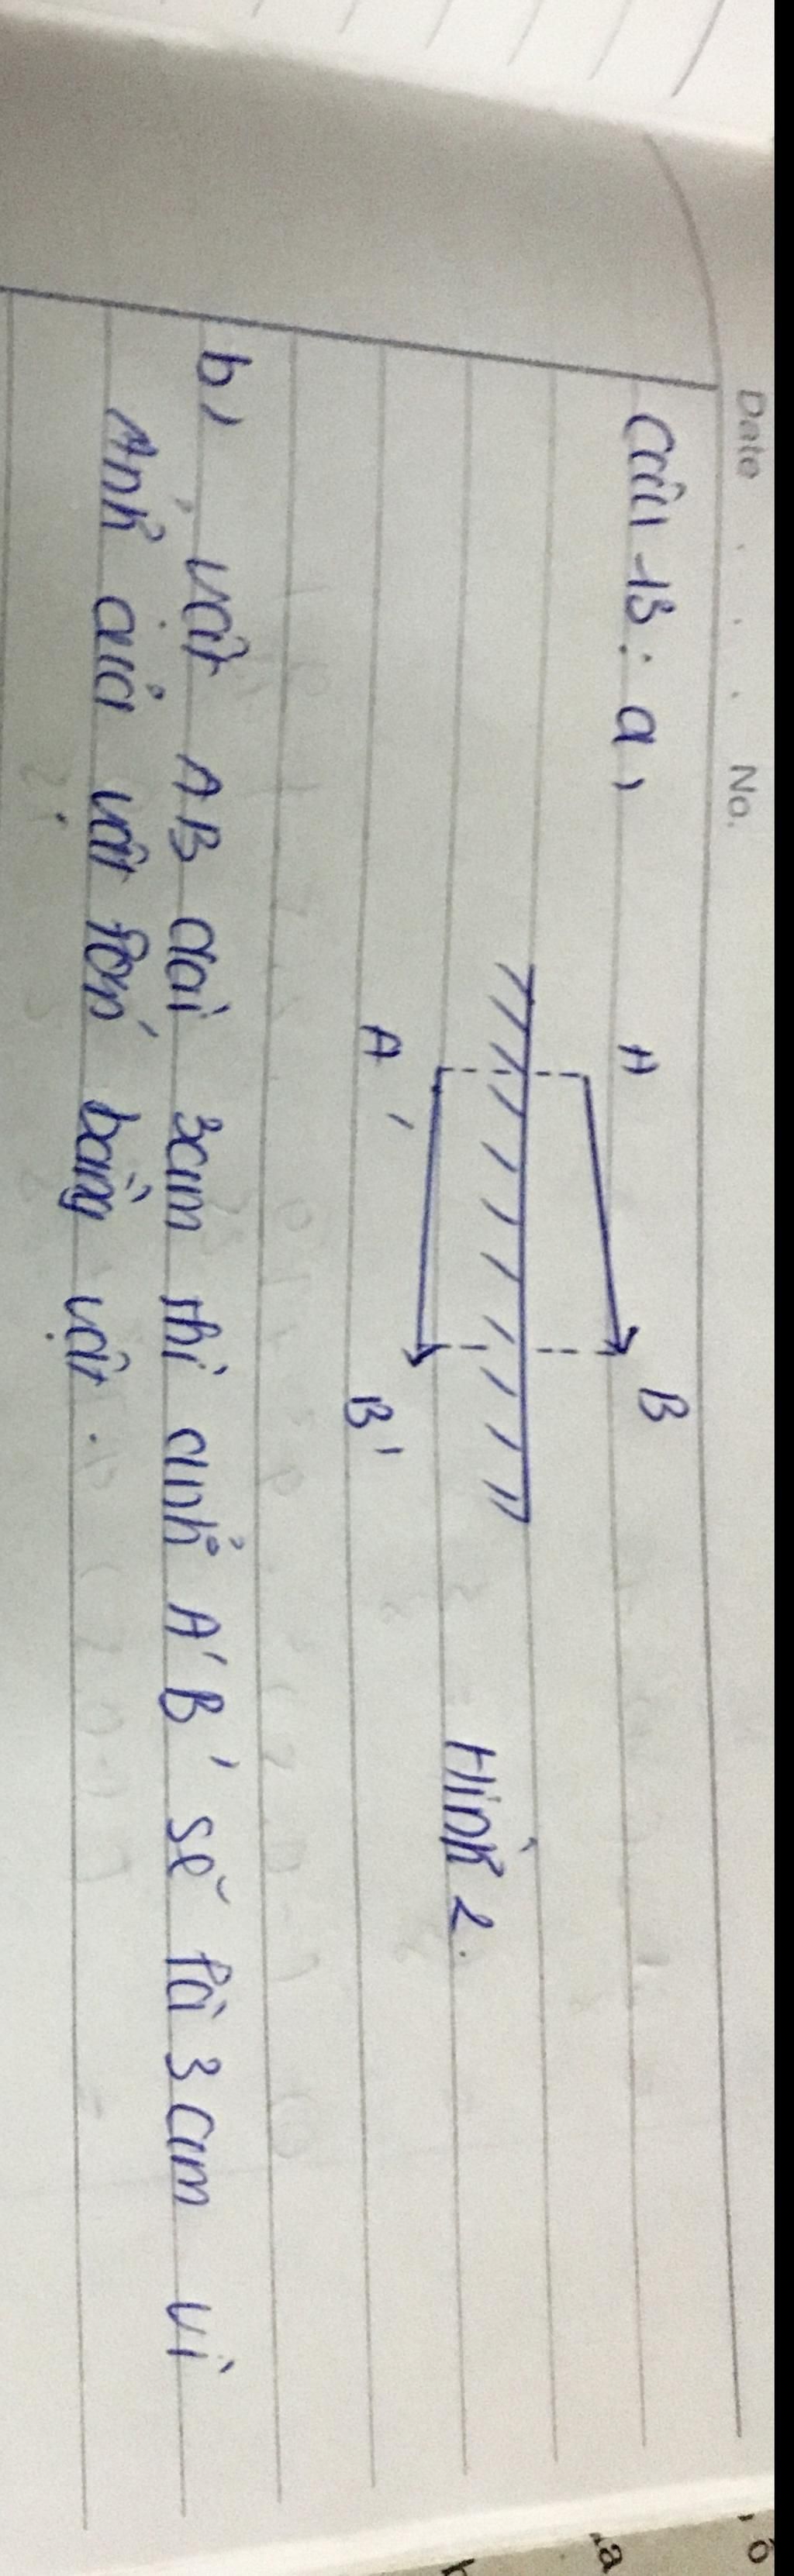 Date . . . No.
Câu 13: a,
A B
A' B'
Hình 2.
b, vật AB dài 3cm thì ảnh A'B' sẽ là 3cm vì
Ảnh của vật lớn bằng vật.